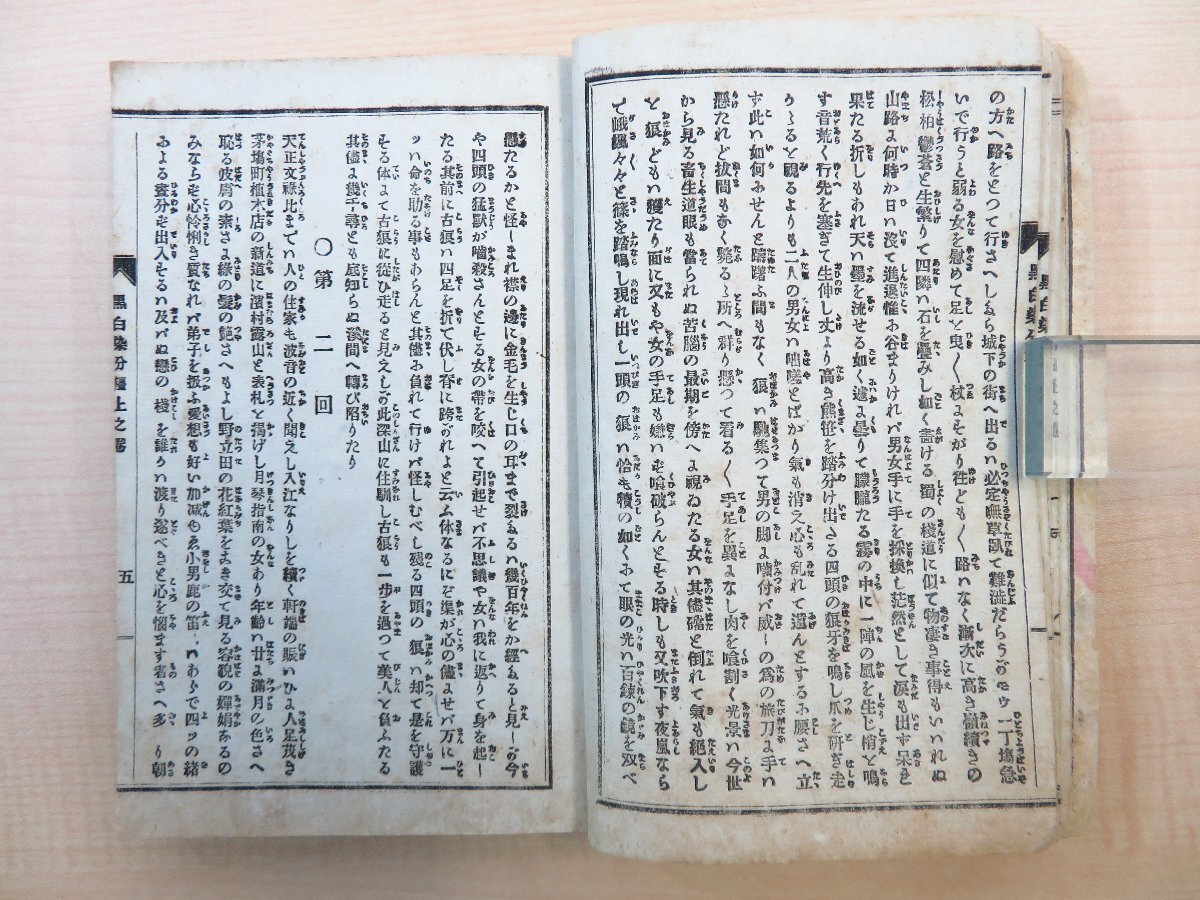 の方へ路をとつて行さへしなら城下の街へ出るハ必定嘸草臥て難澁だらうがモウ一丁塲急
いで行うと弱る女を慰めて足と曳く杖にそがり徃どもく路ハなく漸次に高き嶺續きの
松柏鬱蒼と生繁りて四隣ハ石を疊みし如く嗇ける蜀の棧道に似て物凄き事得もいれぬ
山路に何時か日ハ沒て進退惟お谷まりけれバ男女手に手を採換し茫然として淚も出ず呆き
果たる折しもあれ天ハ墨を流せる如く遽に曇りて朦朧たる霧の中に一陣の風を生じ梢と鳴
す音荒く行先を塞ぎて生伸し丈より高き熊笹を踏分け出さる四頭の狼牙を鳴し爪を研ぎ走
りくると視るよりも二人の男女ハ咄嗟とばかり氣も消え心も乱れて遁んとするお腰さへ立
ず此ハ如何おせんと躊躇ふ間もなく狼ハ馳集つて男の脚に噛付バ威しの爲の旅刀に手ハ
懸たれど拔間もあく斃るゝ所へ群り懸つて看るく手足を異になし肉を喰割く光景ハ今世
から見る畜生道眼も當られぬ苦腦の最期を傍へに視ゐたる女ハ其儘礑と倒れて氣も絶入し
と狼どもハ獲たり面に又もや女の手足も嫌ハも喰破らんとそる時しも又吹下す夜嵐なら
で峨々と篠を踏鳴し現れ出し一頭の狼ハ恰も犢の如くおて眼の光ハ百錬の鏡を双べ
懸たるかと怪しまれ襟の邊に金毛を生じ口の耳まで裂あるハ幾百年をか經あると見しが今
や四頭の猛獸が噛殺さんとそる女の帶を咬へて引起せバ不思議や女ハ我に返りて身を起し
たる其前に古狼ハ四足を折て伏し脊に跨がれよと云ふ体なるにぞ渠が心の儘にせバ万に一
ツハ命を助る事もあらんと其儘お負れて行けバ怪しむべし殘る四頭の狼ハ知て是を守護
そる体よて古狼に從ひ走ると見えしが此深山に住馴し古狼も一步を過つて美人と負ふたる
其儘に幾千尋とも底知らぬ溪間へ轉び陷りたり
〇第二回
天正文祿比までハ人の住家も波音の近く聞えし入江なりしを續く軒端の賑ハひよ人足茂き
茅塲町植木店の新道に濱村露山と表札と揭げし月琴指南の女あり年齡ハ廿よ滿月の色さへ
恥る皎膚の素さよ綠の髮の艷さへもよし野立田の花紅葉をよき交て見る容貌の嬋娟あるの
みならも心怜悧き質なれバ弟子を扱ふ愛想も好い加减もゑ小男鹿の笛ハあらで四ツの緒
およる壹分も出入そるハ及バぬ戀の棧を誰ハ渡り遂べきと心を惱ます者さへ多り朝
黑白染分韁上之卷
五